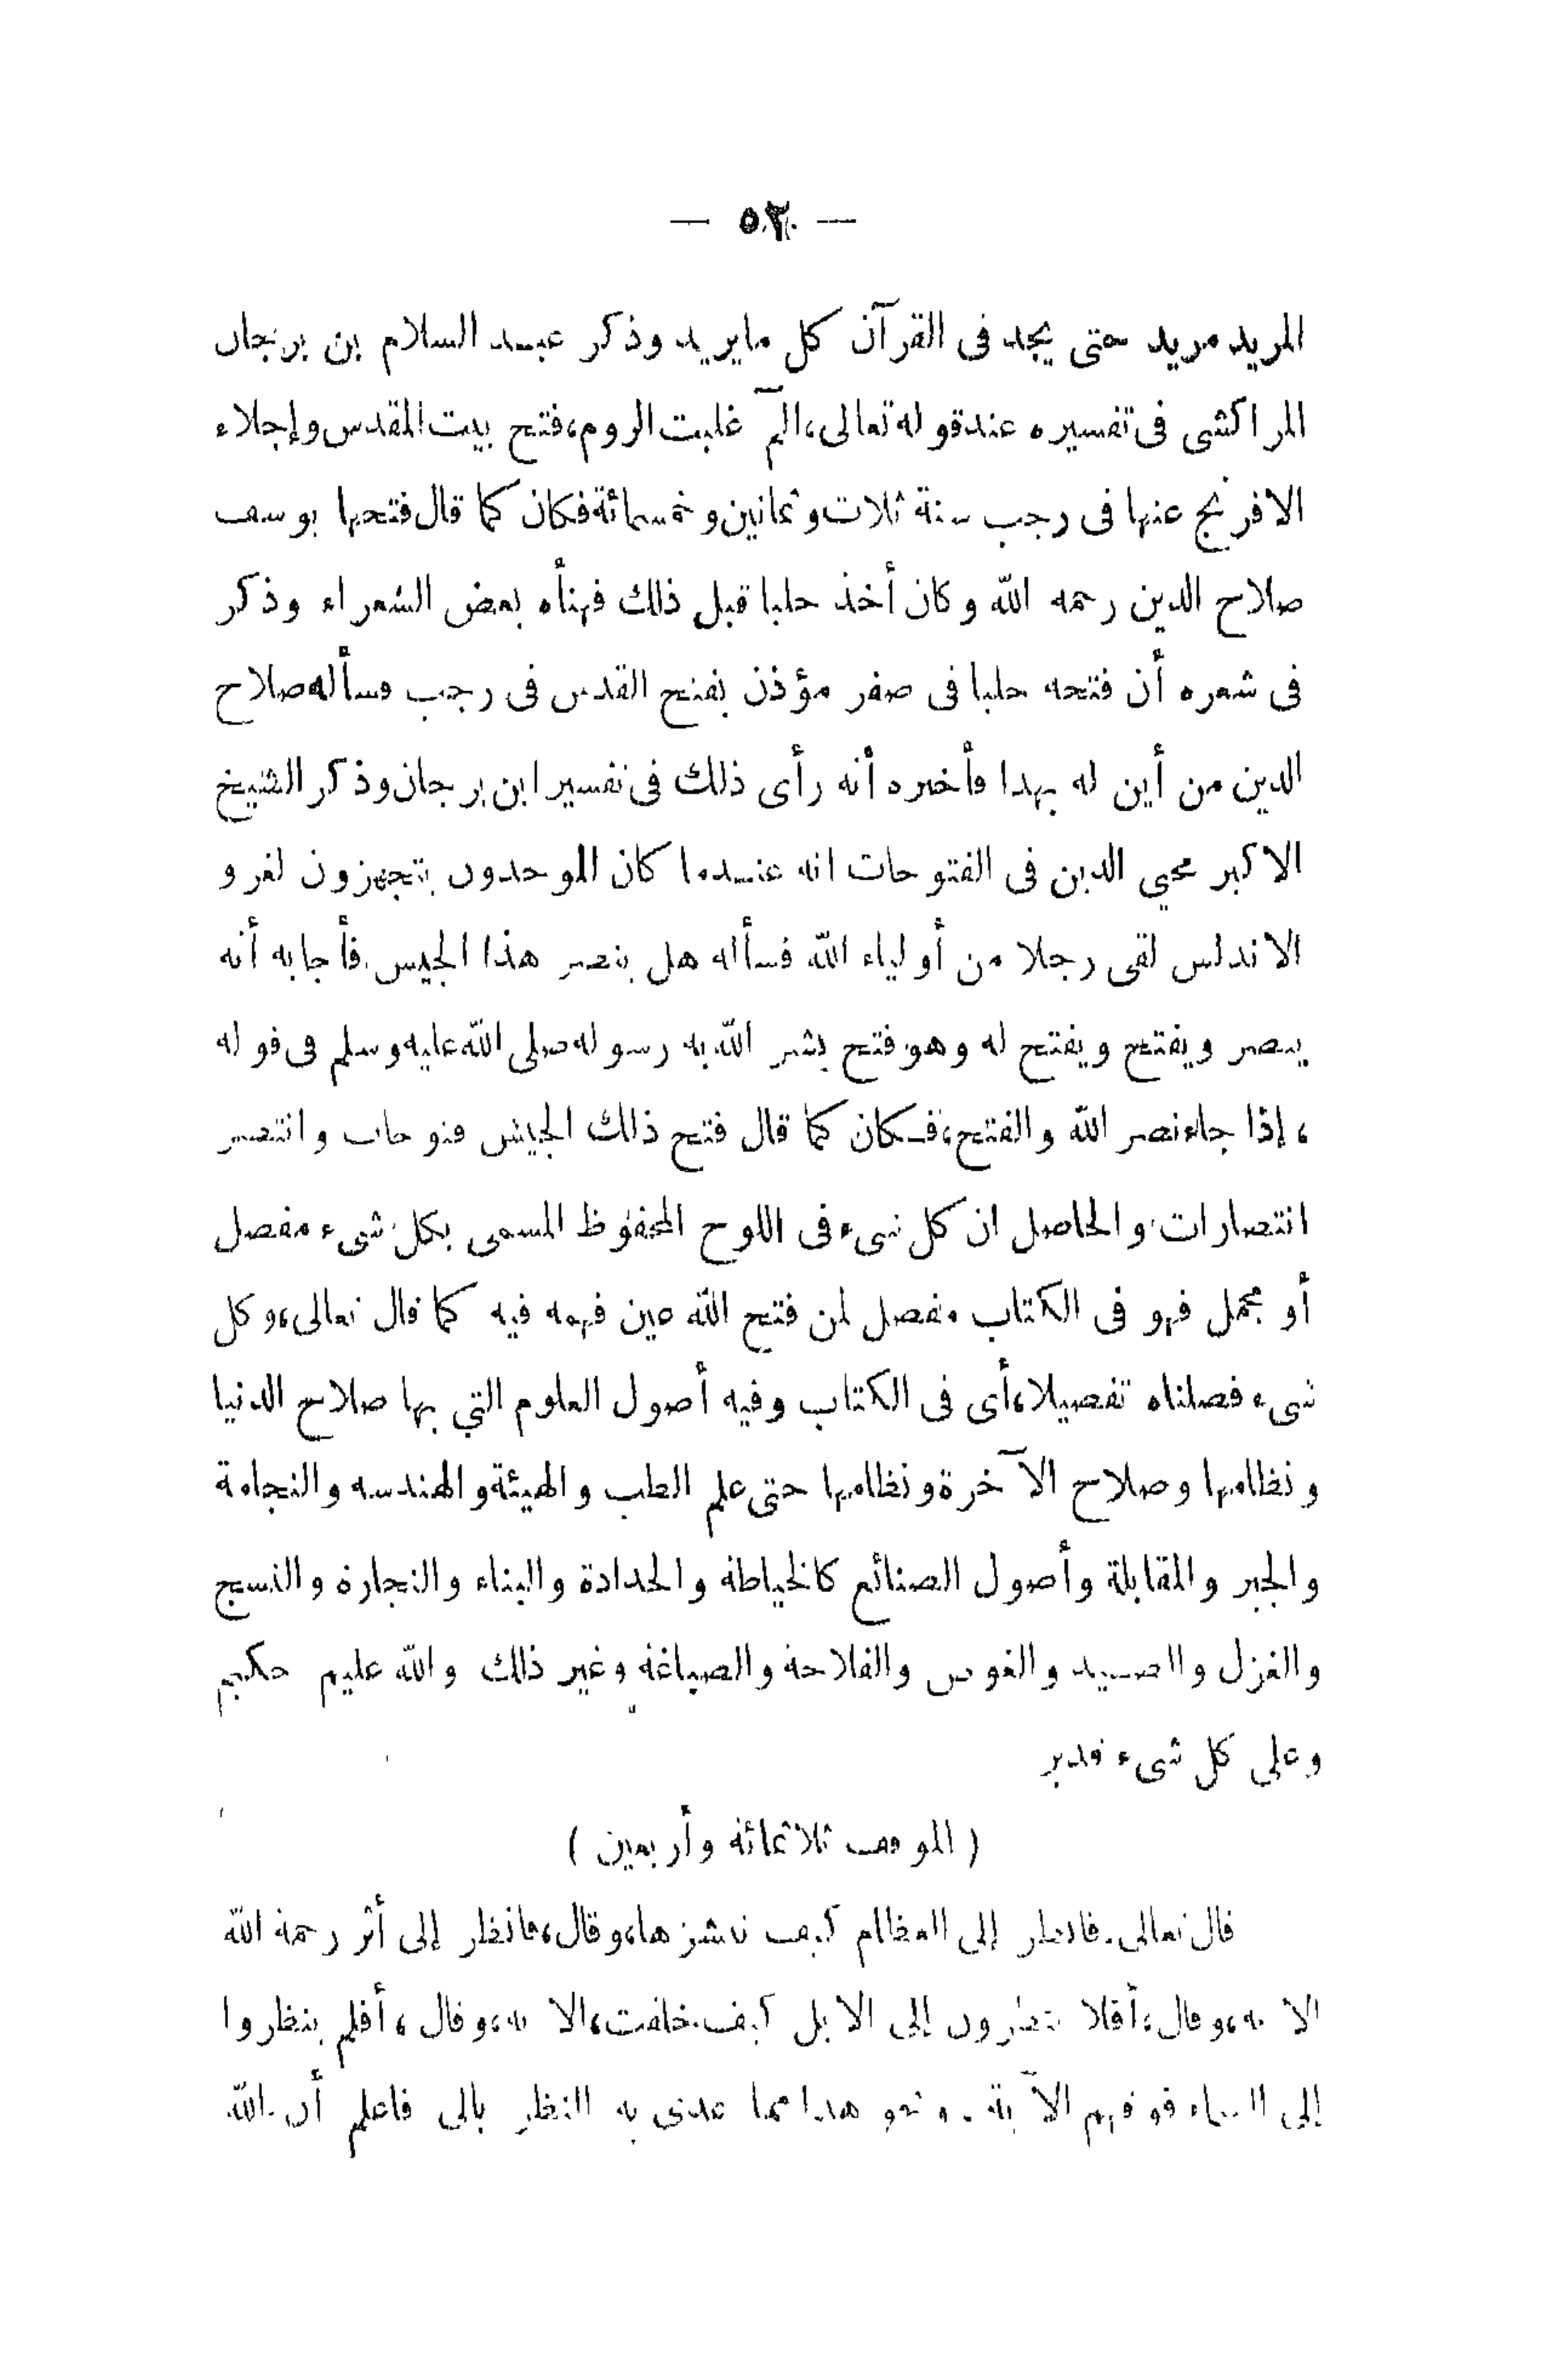 — ٥٢٠ —
المريد مريد حتى يجد فى القرآن كل مايريد وذكر عبد السلام بن برجان
المراكشى فى تفسيره عندقوله تعالى، الٓمٓ غلبت الروم، فتح بيت المقدس وإجلاء
الافرنج عنها فى رجب سنة ثلاث وثمانين وخمسمائة فكان كما قال فتحها يوسف
صلاح الدين رحمه الله وكان أخذ حلبا قبل ذلك فهنأه بعض الشعراء وذكر
فى شعره أن فتحه حلبا فى صفر مؤذن بفتح القدس فى رجب فسأله صلاح
الدين من أين له بهذا فأخبره أنه رأى ذلك فى تفسير ابن برجان وذكر الشيخ
الاكبر محيي الدين فى الفتوحات انه عندما كان الموحدون يتجهزون لغزو
الاندلس لقى رجلا من أولياء الله فسأله هل ينصر هذا الجيش. فأجابه أنه
ينصر ويفتح ويفتح له وهو فتح بشر الله به رسوله صلى الله عليه وسلم فى قوله
، إذا جاء نصر الله والفتح، فكان كما قال فتح ذلك الجيش فتوحات وانتصر
انتصارات والحاصل ان كل شىء فى اللوح المحفوظ المسمى بكل شىء مفصل
أو مجمل فهو فى الكتاب مفصل لمن فتح الله عين فهمه فيه كما قال تعالى، وكل
شىء فصلناه تفصيلا، أى فى الكتاب وفيه أصول العلوم التي بها صلاح الدنيا
ونظامها وصلاح الآخرة ونظامها حتى علم الطب والهيئة والهندسه والنجامة
والجبر والمقابلة وأصول الصنائع كالخياطة والحدادة والبناء والنجارة والنسج
والغزل والصيد والغوص والفلاحة والصباغة وغير ذلك والله عليم حكيم
وعلى كل شىء قدير
( الموقف ثلاثمائة وأربعين )
قال تعالى. فانظر إلى العظام كيف ننشزها، وقال، فانظر إلى أثر رحمة الله
الاية، وقال، أفلا ينظرون إلى الابل كيف خلقت، الاية، وقال، أفلم ينظروا
إلى السماء فوقهم الآية. ونحو هذا مما عدى به النظر بالى فاعلم أن الله